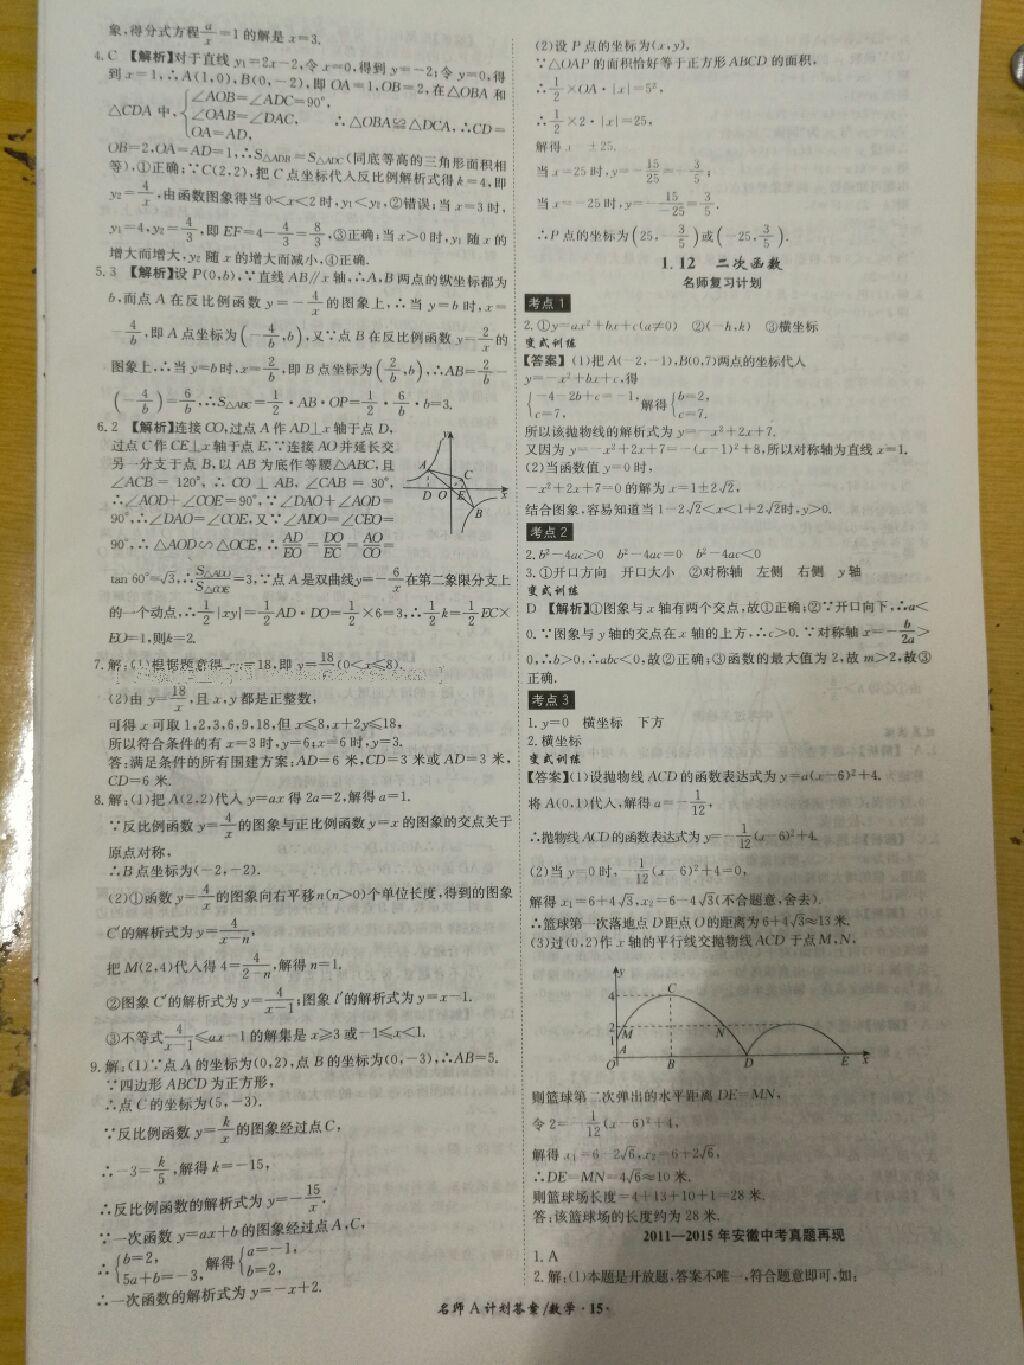 象,得分式方程a/x=1的解是x=3.
4. C 【解析】对于直线y₁=2x-2,令x=0,得到y=-2;令y=0,得
到x=1,∴A(1,0),B(0,-2),即OA=1,OB=2,在△OBA和
△CDA中,{∠AOB=∠ADC=90°, ∠OAB=∠DAC, OA=AD, ∴△OBA≌△DCA,∴CD=
OB=2,OA=AD=1,∴S△ADB=S△ADC(同底等高的三角形面积相
等),①正确;∵C(2,2),把C点坐标代入反比例解析式得k=4,即
y₂=4/x,由函数图象得当0<x<2时,y₁<y₂,②错误;当x=3时,
y₁=4,y₂=4/3,即EF=4-4/3=8/3,③正确;当x>0时,y₁随x的
增大而增大,y₂随x的增大而减小,④正确.
5. 3 【解析】设P(0,b),∵直线AB∥x轴,∴A,B两点的纵坐标都为
b,而点A在反比例函数y=-4/x的图象上,∴当y=b时,x=
-4/b,即A点坐标为(-4/b,b),又∵点B在反比例函数y=2/x的
图象上,∴当y=b时,x=2/b,即B点坐标为(2/b,b),∴AB=2/b-
(-4/b)=6/b,∴S△ABC=1/2·AB·OP=1/2·6/b·b=3.
6. 2 【解析】连接CO,过点A作AD⊥x轴于点D,
过点C作CE⊥x轴于点E,∵连接AO并延长交
另一分支于点B,以AB为底作等腰△ABC,且
∠ACB=120°,∴CO⊥AB,∠CAB=30°,
∴∠AOD+∠COE=90°,∵∠DAO+∠AOD=
90°,∴∠DAO=∠COE,又∵∠ADO=∠CEO=
90°,∴△AOD∽△OCE,∴AD/EO=DO/EC=AO/CO=
tan 60°=√3,∴S△AOD/S△COE=3,∵点A是双曲线y=-6/x在第二象限分支上
的一个动点,∴1/2|xy|=1/2AD·DO=1/2×6=3,∴1/2k=1/2EC×
EO=1,则k=2.
y
A
C
D
O
E
x
B
7. 解:(1)根据题意得xy=18,即y=18/x(0<x≤8).
(2)由y=18/x,且x,y都是正整数,
可得x可取1,2,3,6,9,18,但x≤8,x+2y≤18,
所以符合条件的有x=3时,y=6;x=6时,y=3.
答:满足条件的所有围建方案:AD=6米,CD=3米或AD=3米,
CD=6米.
8. 解:(1)把A(2,2)代入y=ax得2a=2,解得a=1.
∵反比例函数y=4/x的图象与正比例函数y=x的图象的交点关于
原点对称,
∴B点坐标为(-2,-2).
(2)①函数y=4/x的图象向右平移n(n>0)个单位长度,得到的图象
C′的解析式为y=4/(x-n),
把M(2,4)代入得4=4/(2-n),解得n=1.
②图象C′的解析式为y=4/(x-1);图象l′的解析式为y=x-1.
③不等式4/(x-1)≤ax-1的解集是x≥3或-1≤x<1.
9. 解:(1)∵点A的坐标为(0,2),点B的坐标为(0,-3),∴AB=5.
∵四边形ABCD为正方形,
∴点C的坐标为(5,-3).
∵反比例函数y=k/x的图象经过点C,
∴-3=k/5,解得k=-15,
∴反比例函数的解析式为y=-15/x.
∵一次函数y=ax+b的图象经过点A,C,
∴{b=2, 5a+b=-3,解得{a=-1, b=2,
∴一次函数的解析式为y=-x+2.
(2)设P点的坐标为(x,y).
∵△OAP的面积恰好等于正方形ABCD的面积,
∴1/2×OA·|x|=5²,
∴1/2×2·|x|=25,
解得x=±25.
当x=25时,y=-15/25=-3/5;
当x=-25时,y=-15/-25=3/5.
∴P点的坐标为(25,-3/5)或(-25,3/5).
1.12 二次函数
名师复习计划
考点1
2. ①y=ax²+bx+c(a≠0) ②(-h,k) ③横坐标
变式训练
【答案】(1)把A(-2,-1),B(0,7)两点的坐标代入
y=-x²+bx+c,得
{-4-2b+c=-1, c=7, 解得{b=2, c=7.
所以该抛物线的解析式为y=-x²+2x+7.
又因为y=-x²+2x+7=-(x-1)²+8,所以对称轴为直线x=1.
(2)当函数值y=0时,
-x²+2x+7=0的解为x=1±2√2,
结合图象,容易知道当1-2√2<x<1+2√2时,y>0.
考点2
2. b²-4ac>0 b²-4ac=0 b²-4ac<0
3. ①开口方向 开口大小 ②对称轴 左侧 右侧 y轴
变式训练
D 【解析】①图象与x轴有两个交点,故①正确;②∵开口向下,∴a<
0.∵图象与y轴的交点在x轴的上方,∴c>0.∵对称轴x=-b/2a>
0,∴b>0,∴abc<0,故②正确;③函数的最大值为2,故m>2,故③
正确.
考点3
1. y=0 横坐标 下方
2. 横坐标
变式训练
【答案】(1)设抛物线ACD的函数表达式为y=a(x-6)²+4.
将A(0,1)代入,解得a=-1/12,
∴抛物线ACD的函数表达式为y=-1/12(x-6)²+4.
(2)当y=0时,-1/12(x-6)²+4=0,
解得x₁=6+4√3,x₂=6-4√3(不合题意,舍去).
∴篮球第一次落地点D距点O的距离为6+4√3≈13米.
(3)过(0,2)作x轴的平行线交抛物线ACD于点M,N,
y
4
C
2
M
N
1
A
O
B
D
E
x
则篮球第二次弹出的水平距离DE=MN,
令2=-1/12(x-6)²+4,
解得x₁=6-2√6,x₂=6+2√6,
∴DE=MN=4√6≈10米.
则篮球场长度=4+13+10+1=28米.
答:该篮球场的长度约为28米.
2011—2015年安徽中考真题再现
1. A
2. 解:(1)本题是开放题,答案不唯一,符合题意即可,如:
名师A计划答案/数学·15·